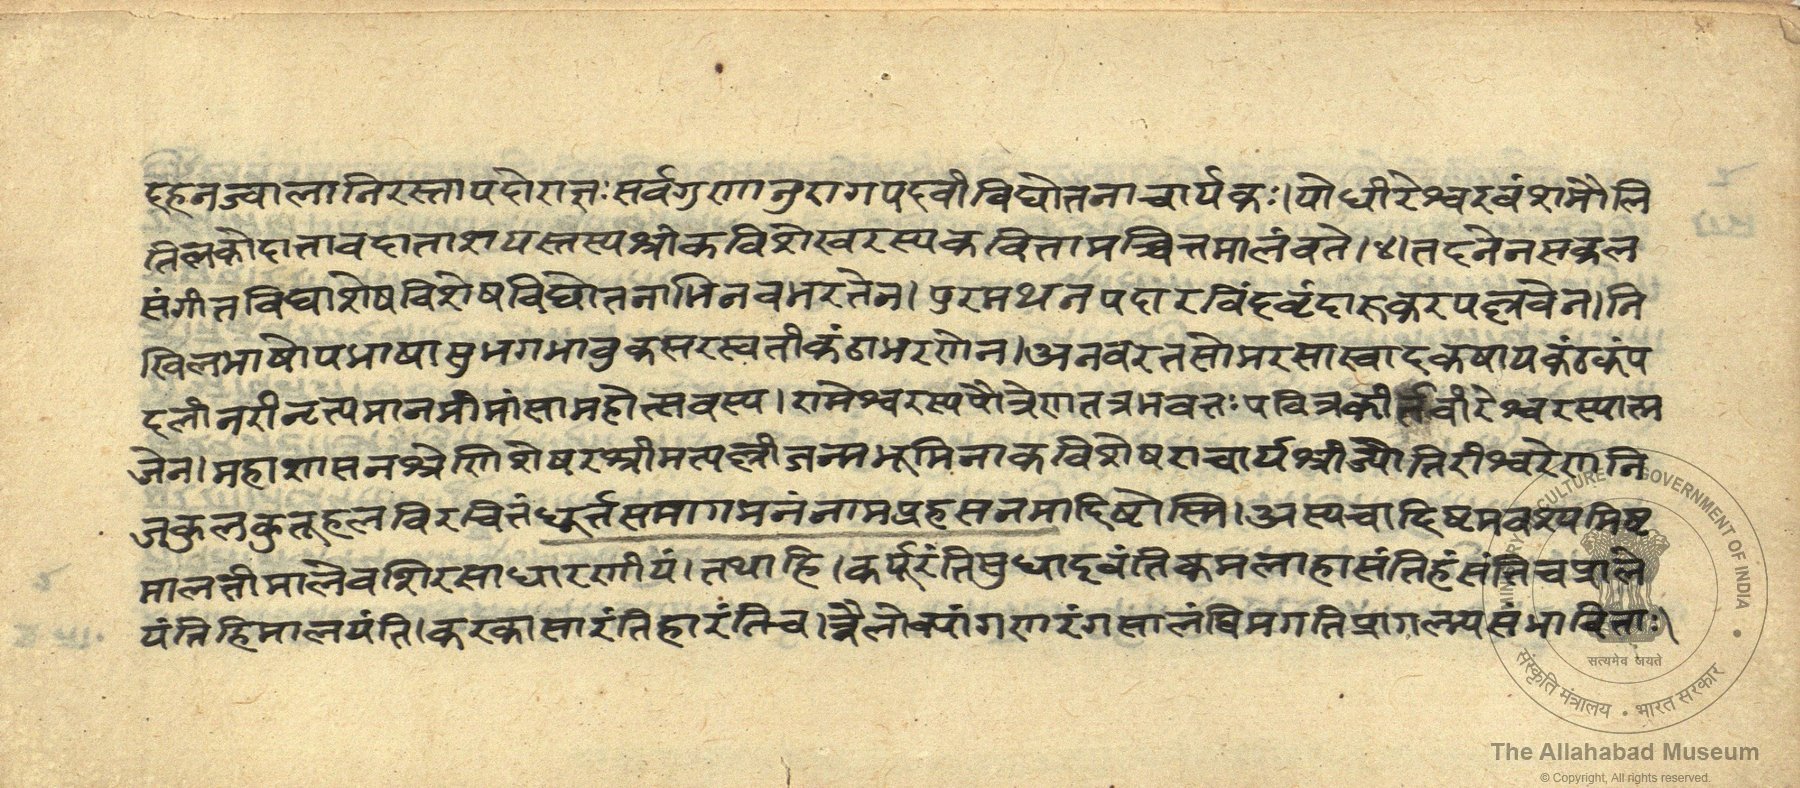 दहनज्वालानिरस्तापदोराज्ञः सर्वगुणानुरागपदवीविद्योतनाचार्यकः।योधीरेश्वरवंशमौलि
तिलकोदात्तावदाताशयस्तस्यश्रीकविशेखरस्यकवितामश्चित्तमालंवते।४।तदनेनसकल
संगीतविद्याशेषविशेषविद्योतनाभिनवभरतेन।पुरमथनपदारविंदवृंदारुकरपल्लवेन।नि
खिलभाषोपभाषासुभगभावुकसरस्वतीकंठाभरणेन।अनवरतसोमरसास्वादकषायकंठकंप
दलीनरीनृत्यमानमीमांसामहोत्सवस्य।रामेश्वरस्यपौत्रेणतत्रभवतः पवित्रकीर्तवीरेश्वरस्यात्म
जेन।महाशासनश्रेणिशेषरश्रीमत्पल्लीजन्मभूमिनाकविशेषराचार्यश्रीज्यौतिरीश्वरेणनि
जकुलकुतूहलविरचितंधूर्त्तसमागमनंनामप्रहसनमादिष्टोस्मि।अस्यचादिष्टमवश्यमिष्ट
मालतीमालेवशिरसाधारणीयं।तथाहि।कर्पूरंतिसुधाद्रवंतिकमलाहासंतिहंसंतिचप्राले
यंतिहिमालयंति।करकासारंतिहारंतिच।त्रैलोक्यांगणरंगसालंघिमगतिप्रागल्भ्यसंभाविताः।
The Allahabad Museum
© Copyright, All rights reserved.
MINISTRY OF CULTURE GOVERNMENT OF INDIA
सत्यमेव जयते
संस्कृति मंत्रालय • भारत सरकार